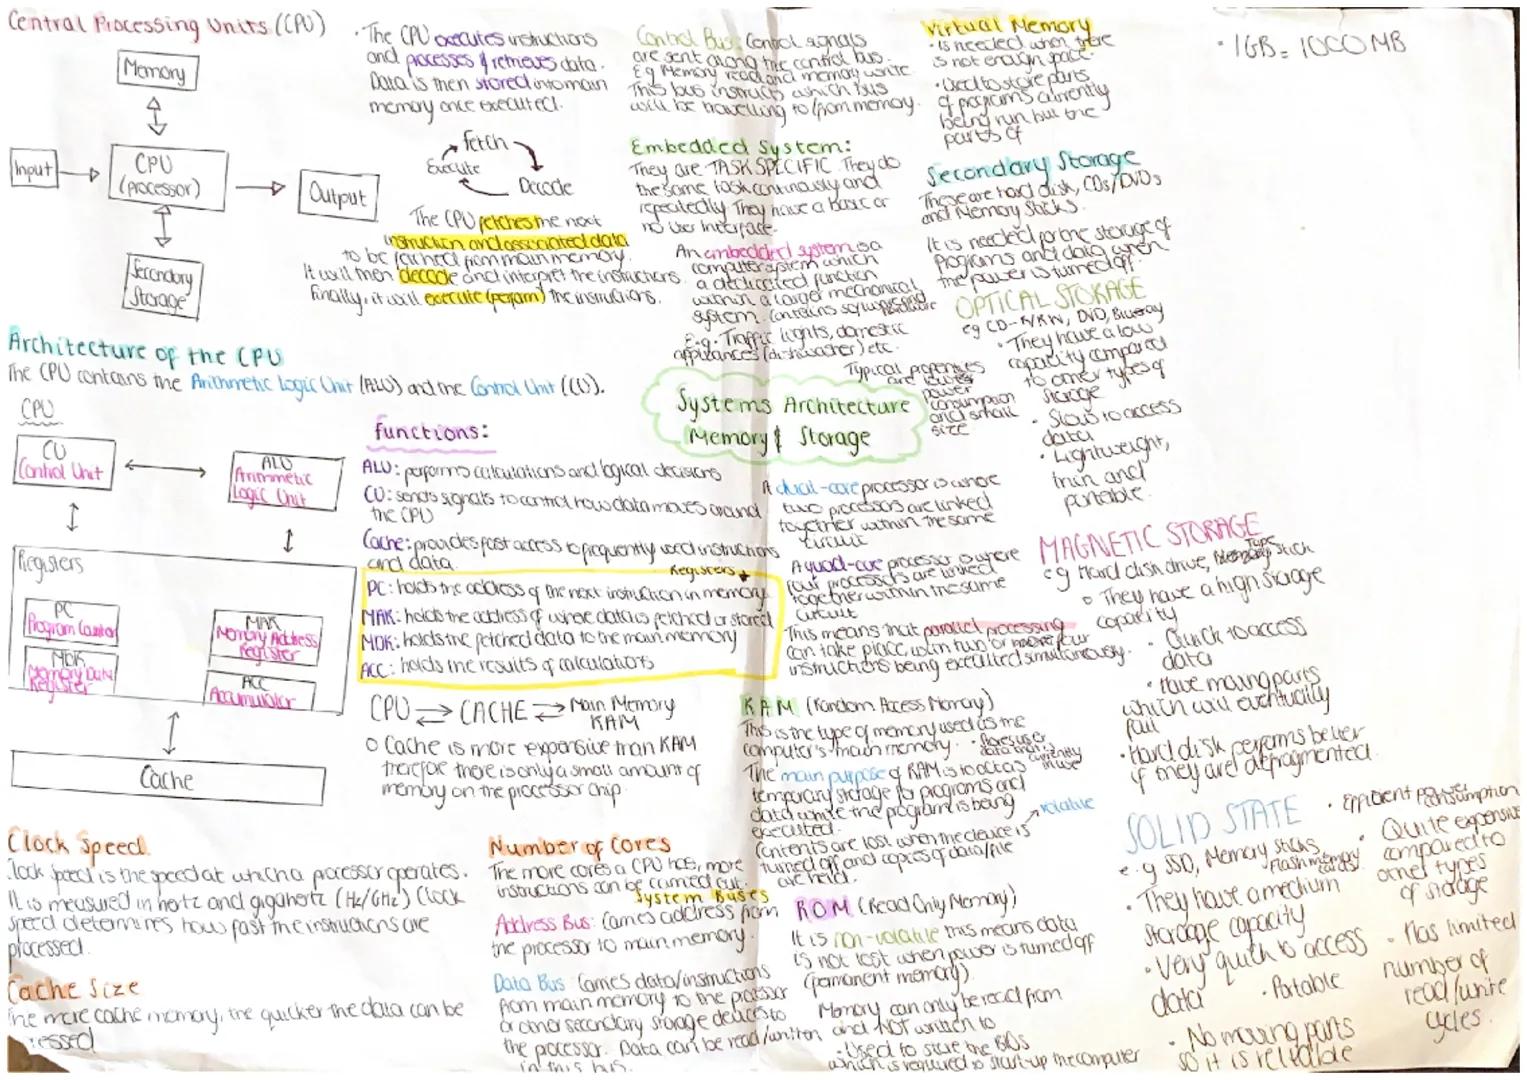 Central Processing Units (CPU)
Memory
Input
CPU
(processor)
Output
Secondary
Storage
· The CPU executes instructions
and processes & retrieves data.
Data is then stored into main
memory once executed.
Fetch
Decode
Execute
The CPU fetches the next
instruction and associated data
to be fetched from main memory.
It will then decode and interpret the instructions.
Finally, it will execute (perform) the instructions.
Architecture of the CPU
The CPU contains the Arithmetic Logic Unit (ALU) and the Control Unit (CU).
CPU
CU
Control Unit
ALU
Arithmetic
Logic Unit
Registers
PC
Program Counter
MDR
Memory Data
Register
MAR
Memory Address
Register
ACC
Accumulator
Cache
Functions:
ALU: performs calculations and logical decisions
CU: sends signals to control how data moves around
the CPU
Cache: provides fast access to frequently used instructions
and data.
Registers
PC: holds the address of the next instruction in memory
MAR: holds the address of where data is fetched or stored
MDR: holds the fetched data to the main memory
ACC: holds the results of calculations
CPU ⇌ CACHE ⇌ Main Memory
RAM
o Cache is more expensive than RAM
therefore there is only a small amount of
memory on the processor chip.
Clock Speed
Clock speed is the speed at which a processor operates.
It is measured in hertz and gigahertz (Hz/GHz) Clock
speed determines how fast the instructions are
processed.
Cache Size
The more cache memory, the quicker the data can be
Number of Cores
The more cores a CPU has, more
instructions can be carried out.
System Buses
Address Bus: Carries address from
the processor to main memory.
Data Bus: Carries data/instructions
from main memory to the processor
or other secondary storage devices to
the processor. Data can be read/written
in this bus.
Control Bus: Control signals
are sent along the control bus.
Eg Memory read and memory write
This bus instructs which bus
will be travelling to/from memory.
Embedded System:
They are TASK SPECIFIC. They do
the same task continously and
repeatedly. They have a basic or
no User Interface.
An embedded system is a
computer system which
a dedicated function
within a larger mechanical
system. Contains software and
hardware
E.g. Traffic lights, domestic
appliances (dishwasher) etc.
Typical properties
are lower
power
consumption
and small
size
Systems Architecture
Memory & Storage
A dual-core processor is where
two processors are linked
together within the same
circuit
A quad-core processor is where
four processors are linked
together within the same
circuit
This means that parallel processing
can take place, with two or more/four
instructions being executed simultaneously.
RAM (Random Access Memory)
This is the type of memory used as the
computer's main memory.
data that is
currently
in use
The main purpose of RAM is to act as
temporary storage for programs and
data while the program is being
executed.
volatile
Contents are lost when the device is
turned off and copies of data/file
are held.
ROM (Read Only Memory)
It is non-volatile this means data
is not lost when power is turned off
(permanent memory).
Memory can only be read from
and NOT written to
· Used to store the BIOS
which is required to start-up the computer
Virtual Memory
· is needed when there
is not enough space.
· Used to store parts
of programs currently
being run but the
parts of
Secondary Storage
These are hard disk, CDs/DVDs
and Memory Sticks.
It is needed for the storage of
Programs and data when
the power is turned off.
OPTICAL STORAGE
eg CD-R/RW, DVD, Blueray
· They have a low
capacity compared
to other types of
storage
· Slow to access
data
· Lightweight,
thin and
portable.
MAGNETIC STORAGE
eg Hard disk drive, Memory Stick
Type
o They have a high storage
capacity
· Quick to access
data
· Have moving parts
which will eventually
fail
· Hard disk performs better
if they are defragmented.
SOLID STATE
e.g SSD, Memory sticks,
Flash memory
cards
· They have a medium
storage capacity
· Very quick to access
data
· Portable
· No moving parts
so it is reliable
· Efficient power consumption
· Quite expensive
compared to
other types
of storage
· Has limited
number of
read/write
cycles.
· 1GB = 1000MB